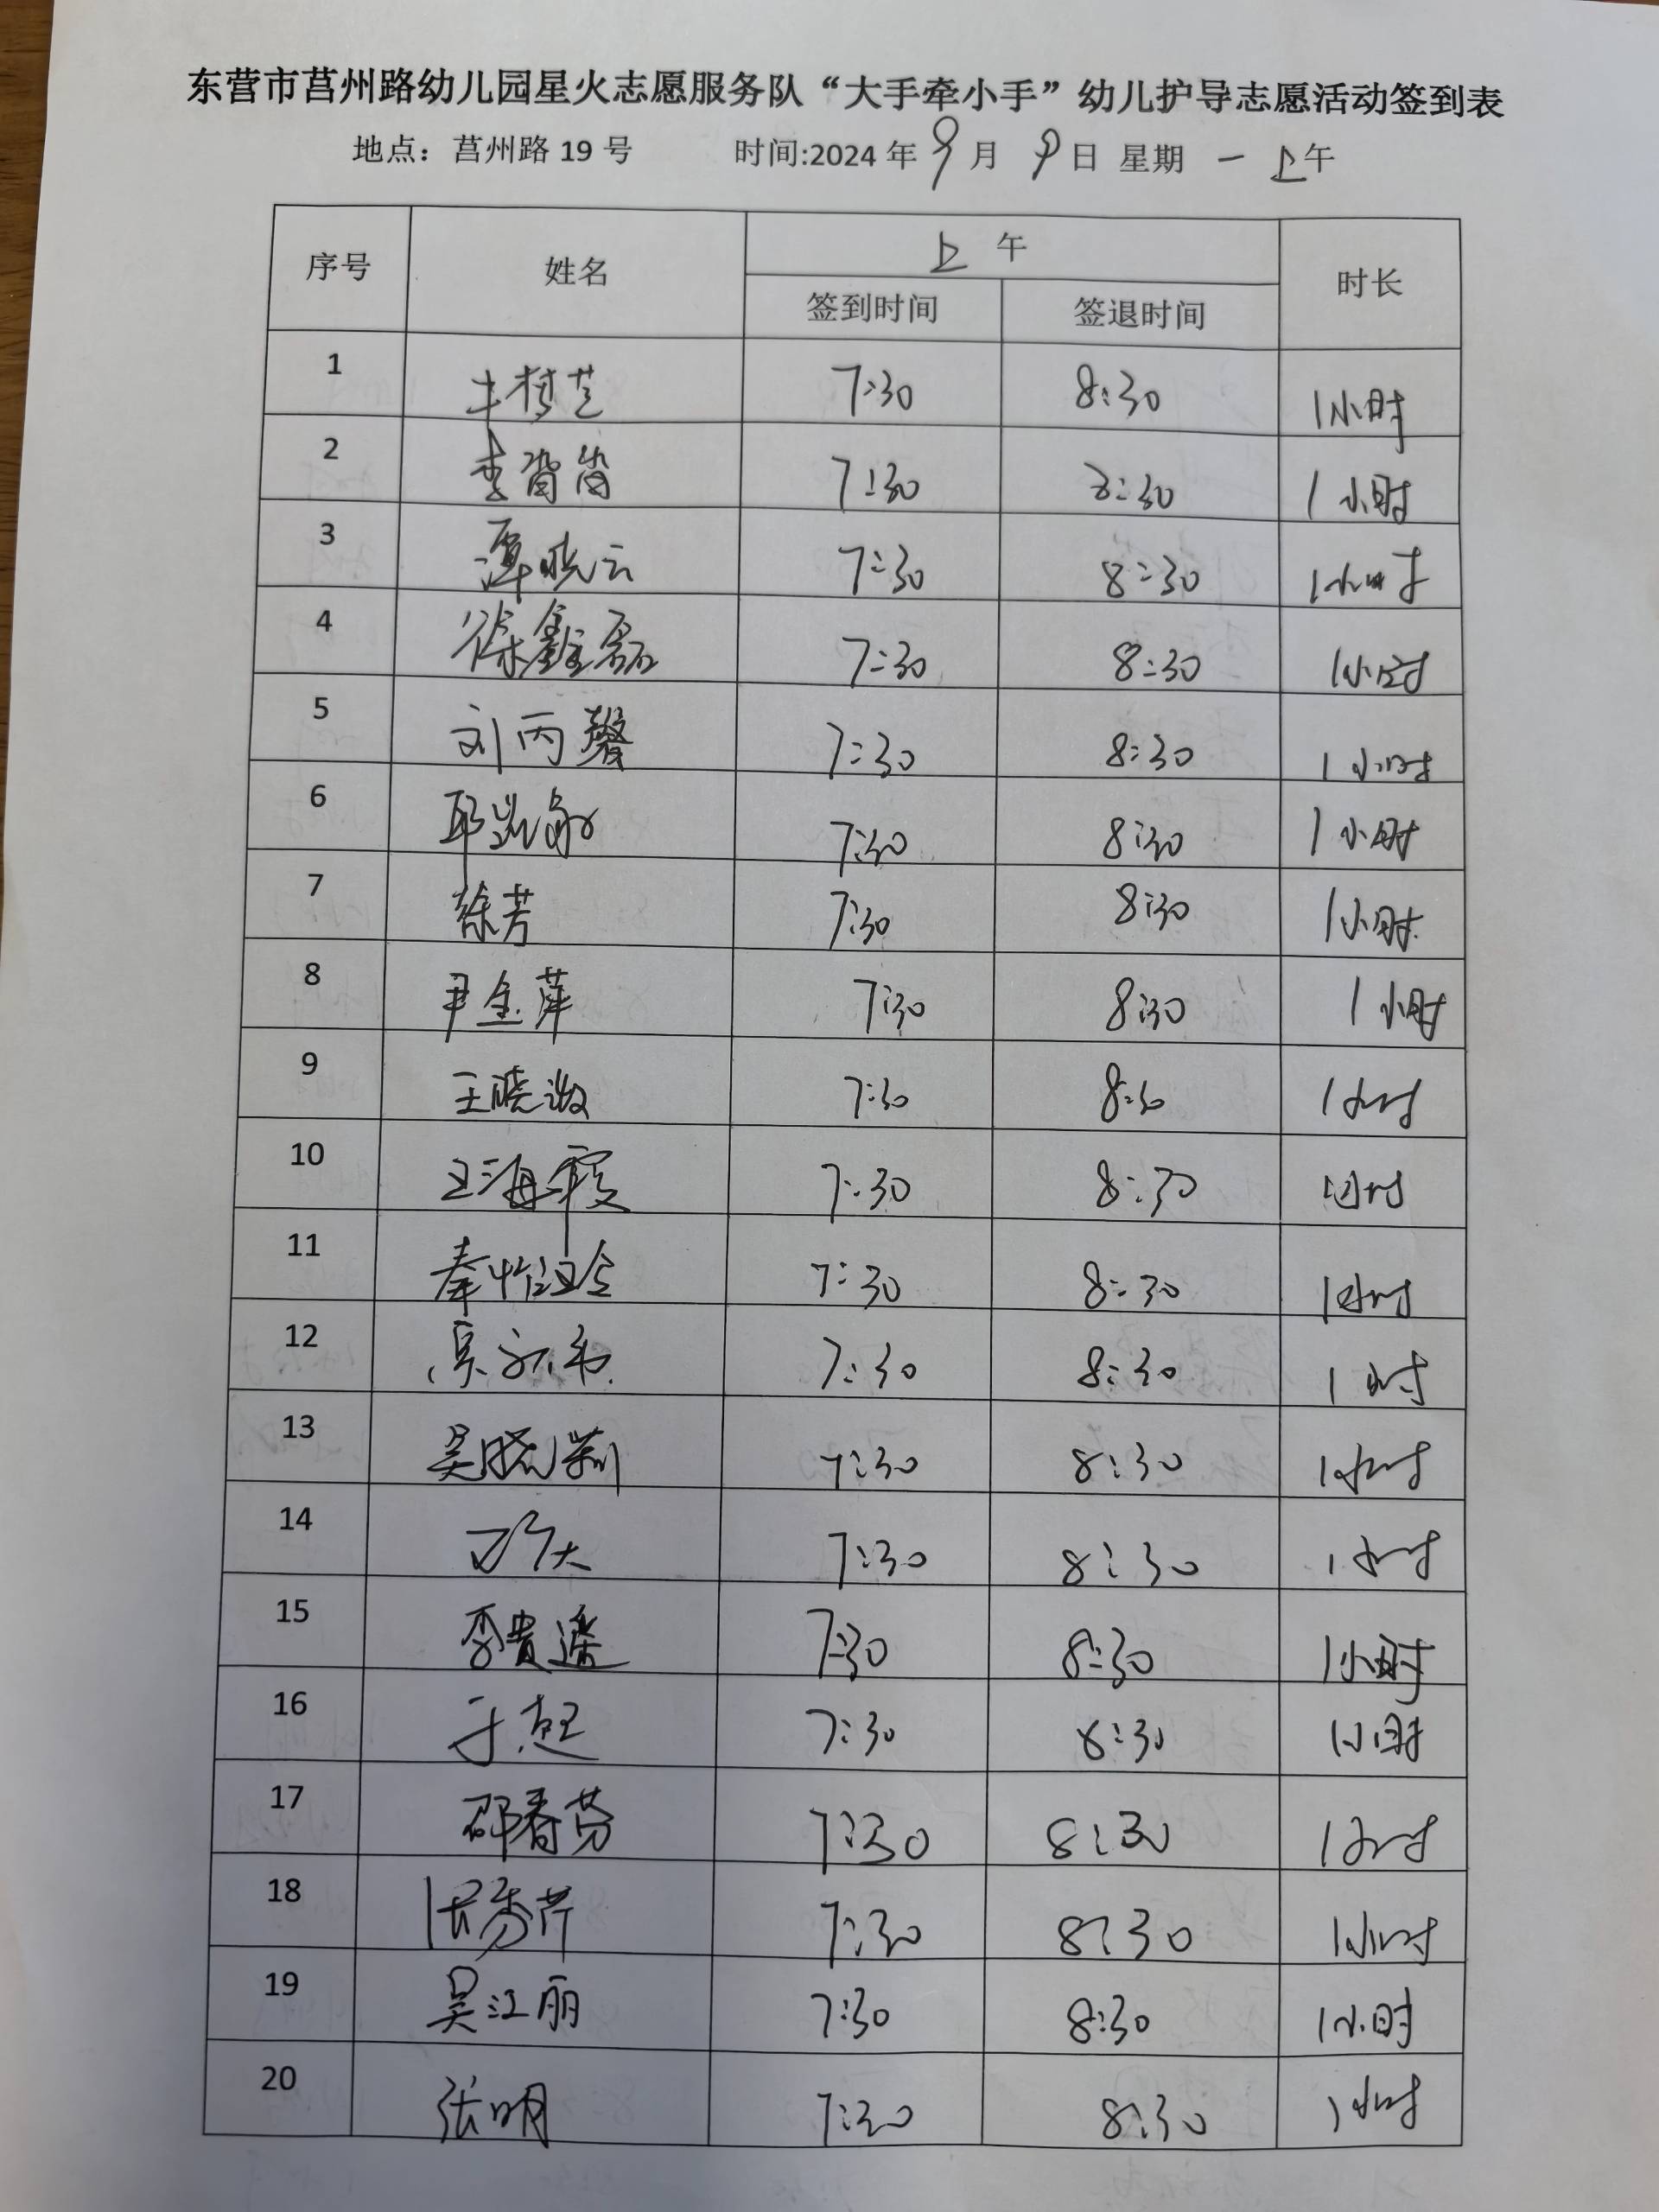 东营市莒州路幼儿园星火志愿服务队“大手牵小手”幼儿护导志愿活动签到表
地点：莒州路 19 号 时间:2024 年 9 月 9 日 星期 一 上午
序号 姓名 上 午 时长
签到时间 签退时间
1 7:30 8:30 1小时
2 李茵茵 7:30 8:30 1小时
3 谭晓云 7:30 8:30 1小时
4 徐鑫磊 7:30 8:30 1小时
5 刘丙馨 7:30 8:30 1小时
6 7:30 8:30 1小时
7 徐芳 7:30 8:30 1小时
8 尹金萍 7:30 8:30 1小时
9 王晓 7:30 8:30 1小时
10 王海霞 7:30 8:30 1小时
11 7:30 8:30 1小时
12 7:30 8:30 1小时
13 吴晓莉 7:30 8:30 1小时
14 7:30 8:30 1小时
15 李贵 7:30 8:30 1小时
16 于 7:30 8:30 1小时
17 邵春芬 7:30 8:30 1小时
18 张秀芹 7:30 8:30 1小时
19 吴江丽 7:30 8:30 1小时
20 张明 7:30 8:30 1小时